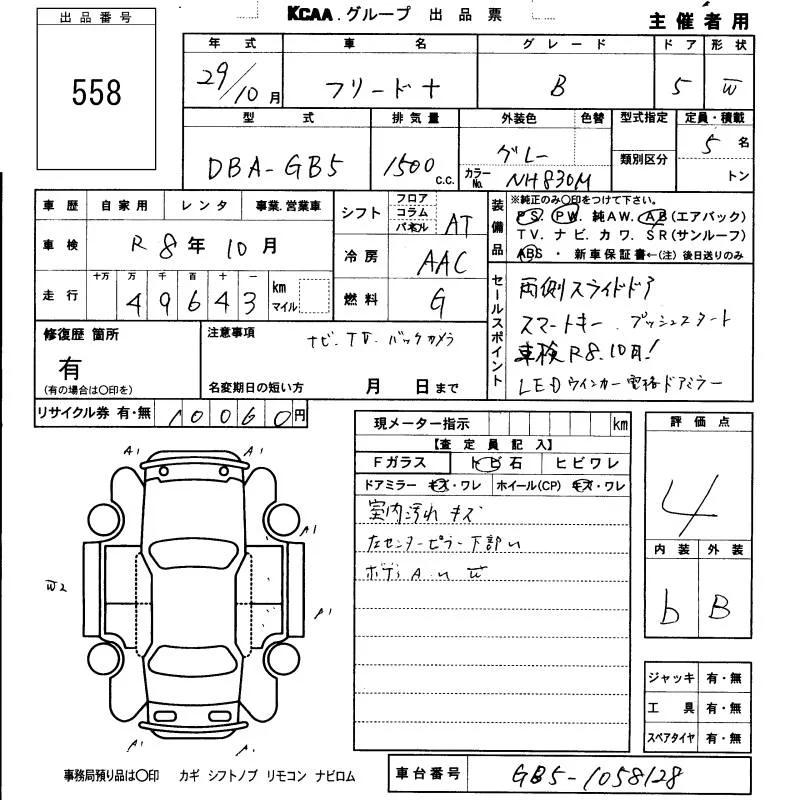 出品番号
KCAA.グループ 出品票
主催者用
558
年式 車名 グレード ドア 形状
29/10月 フリード+ B 5 W
型式 排気量 外装色 色替 型式指定 定員・積載
DBA-GB5 1500 c.c. グレー カラーNo. NH830M 類別区分 5名
トン
車歴 自家用 レンタ 事業.営業車
車検 R8年10月
走行 十万 万 千 百 十 一 km マイル
4 9 6 4 3
シフト フロア コラム パネル AT
冷房 AAC
燃料 G
装備品
※純正のみ〇印をつけて下さい。
PS. PW. 純AW. AB(エアバック)
TV. ナビ. カワ. SR(サンルーフ)
ABS・新車保証書←(注)後日送りのみ
セールスポイント
両側スライドドア
スマートキー. プッシュスタート
車検R8.10月!
LEDウインカー電格ドアミラー
修復歴 箇所
有
(有の場合は〇印を)
注意事項
ナビ.TV.バックカメラ
名変期日の短い方 月 日まで
リサイクル券 有・無 10060円
現メーター指示 km
【査定員記入】
Fガラス トビ石 ヒビワレ
ドアミラー キズ・ワレ ホイール(CP) キズ・ワレ
室内汚れ キズ
左センターピラー下部U
ボディ A.U W
評価点
4
内装 外装
b B
ジャッキ 有・無
工具 有・無
スペアタイヤ 有・無
A1 A1
A1
W2 A1
A1 A1
事務局預り品は〇印 カギ シフトノブ リモコン ナビロム
車台番号 GB5-1058128